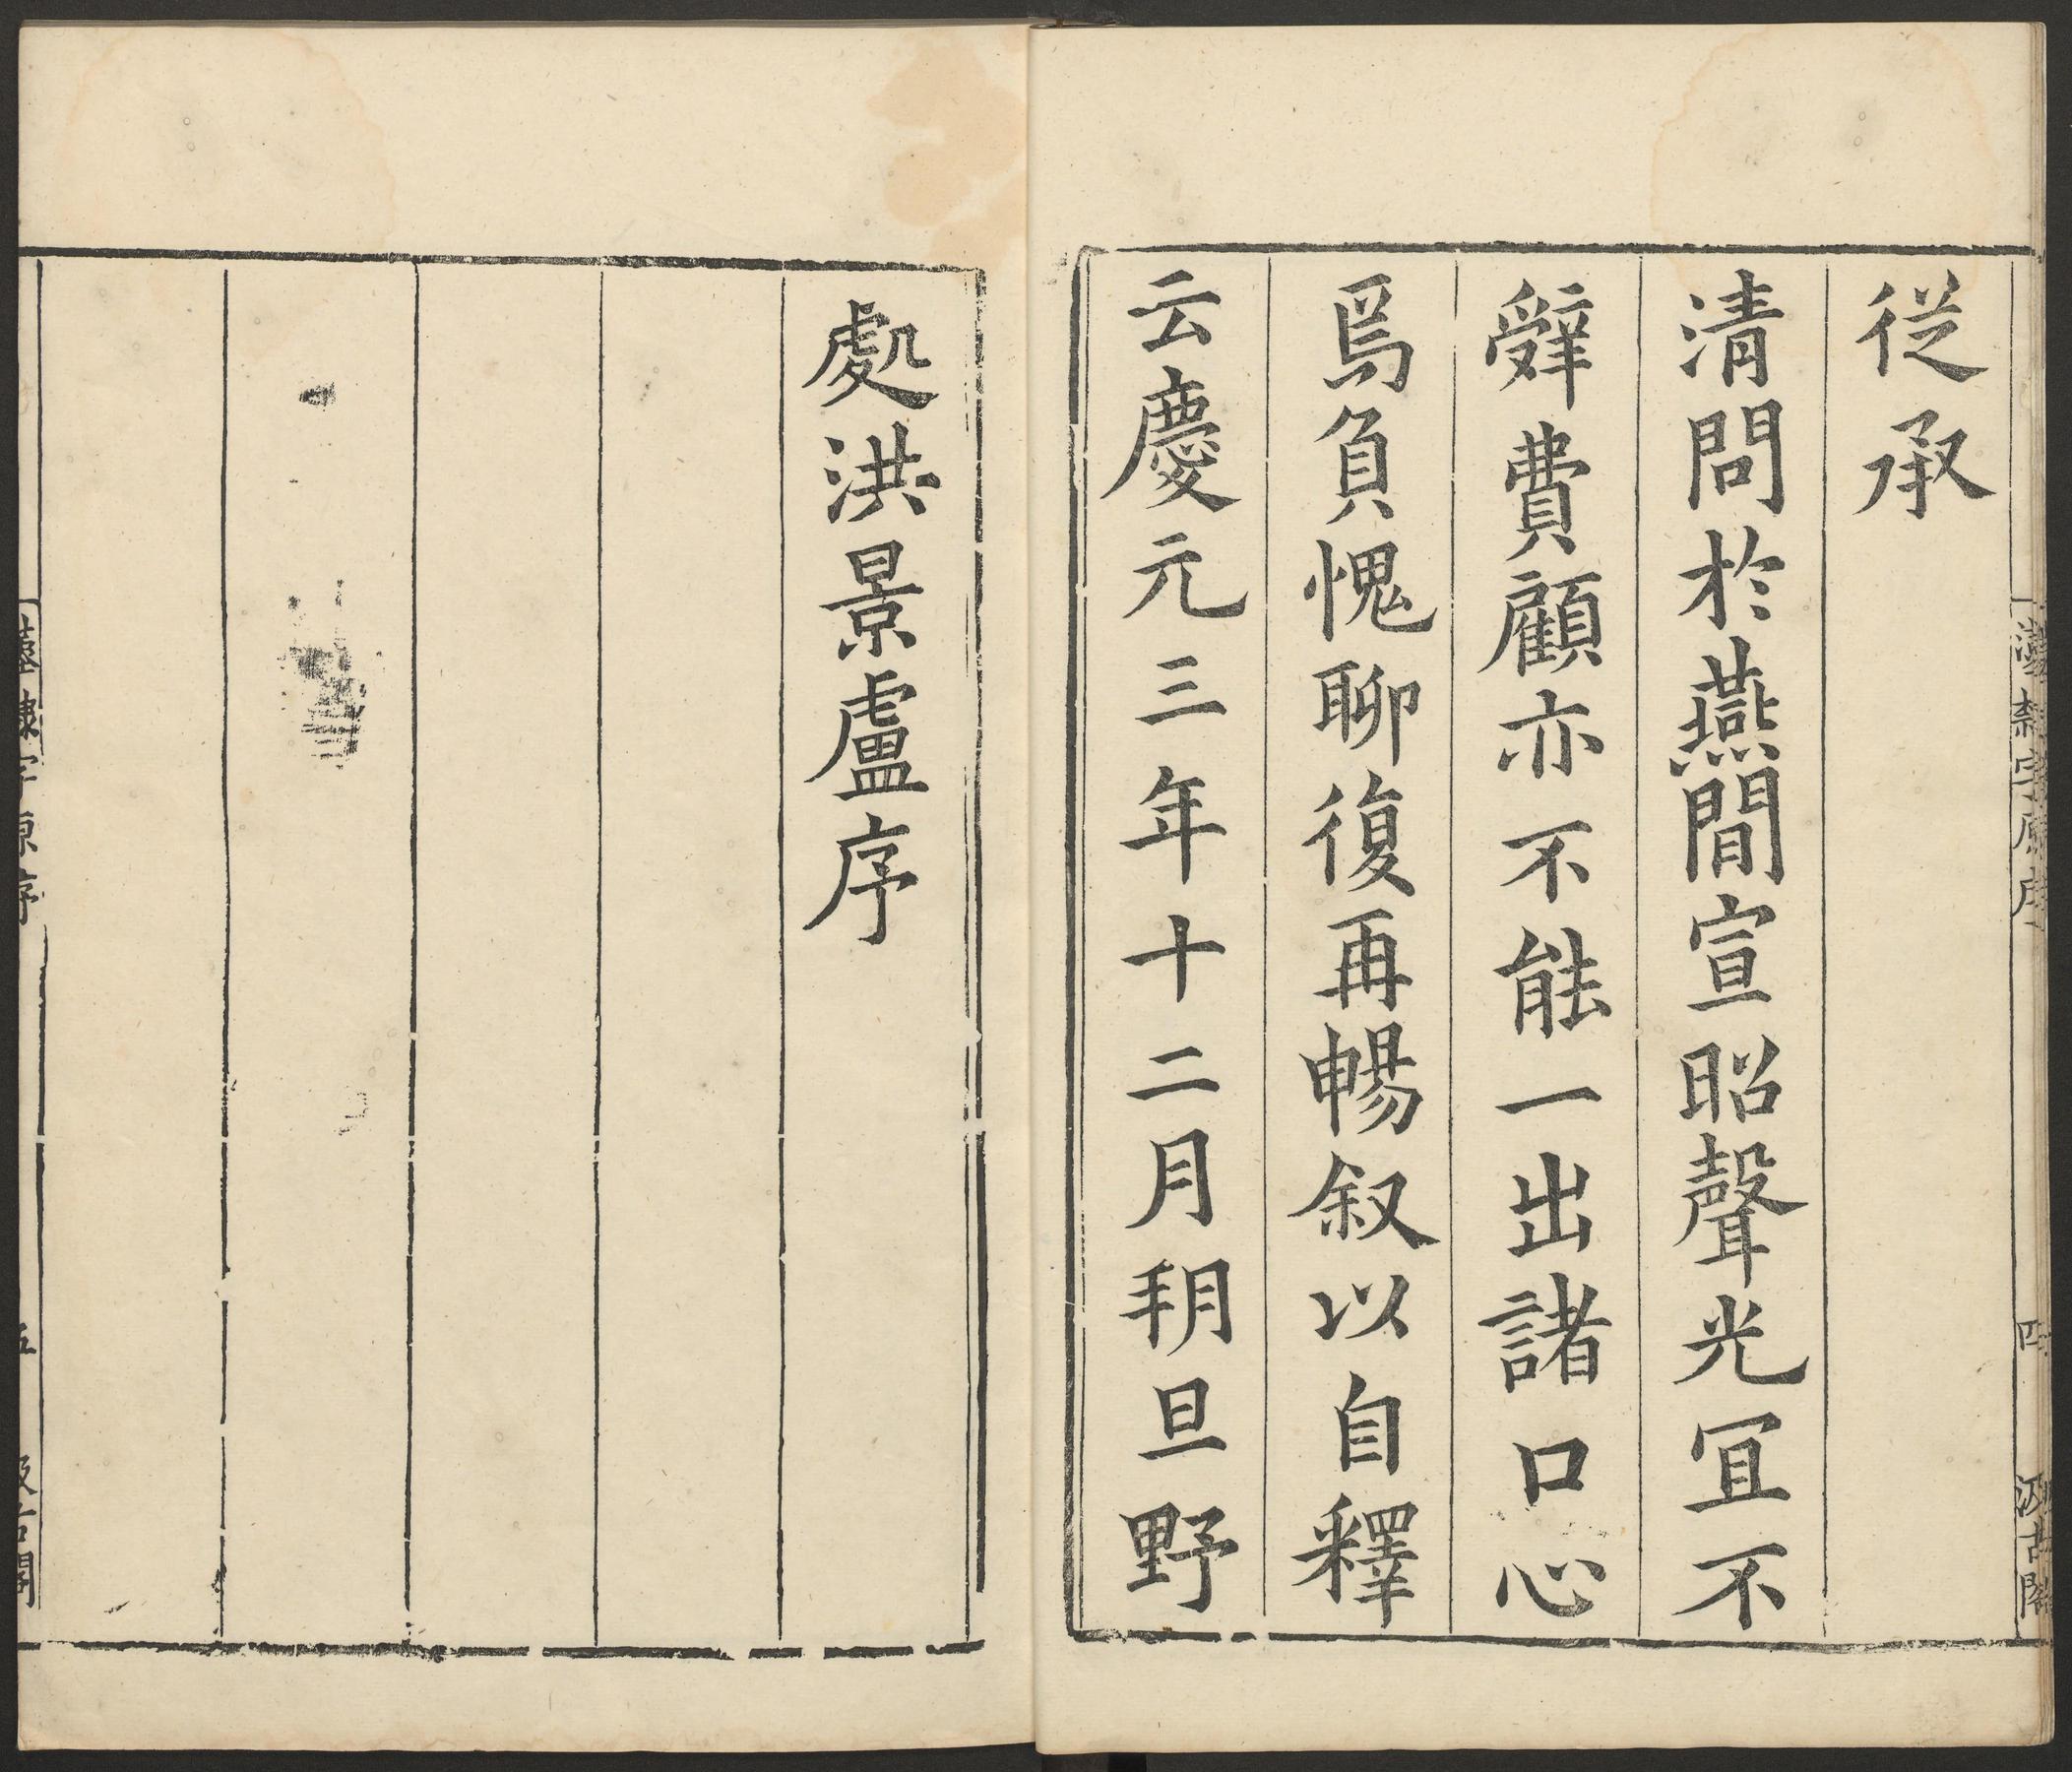 從承
清問於燕間宣昭聲光冝不
辤費顧亦不能一出諸口心
焉負愧聊復再暢叙以自釋
云慶元三年十二月朔旦野
處洪景盧序
漢隸字原序
四
汲古閣
漢隸字原序
五
汲古閣